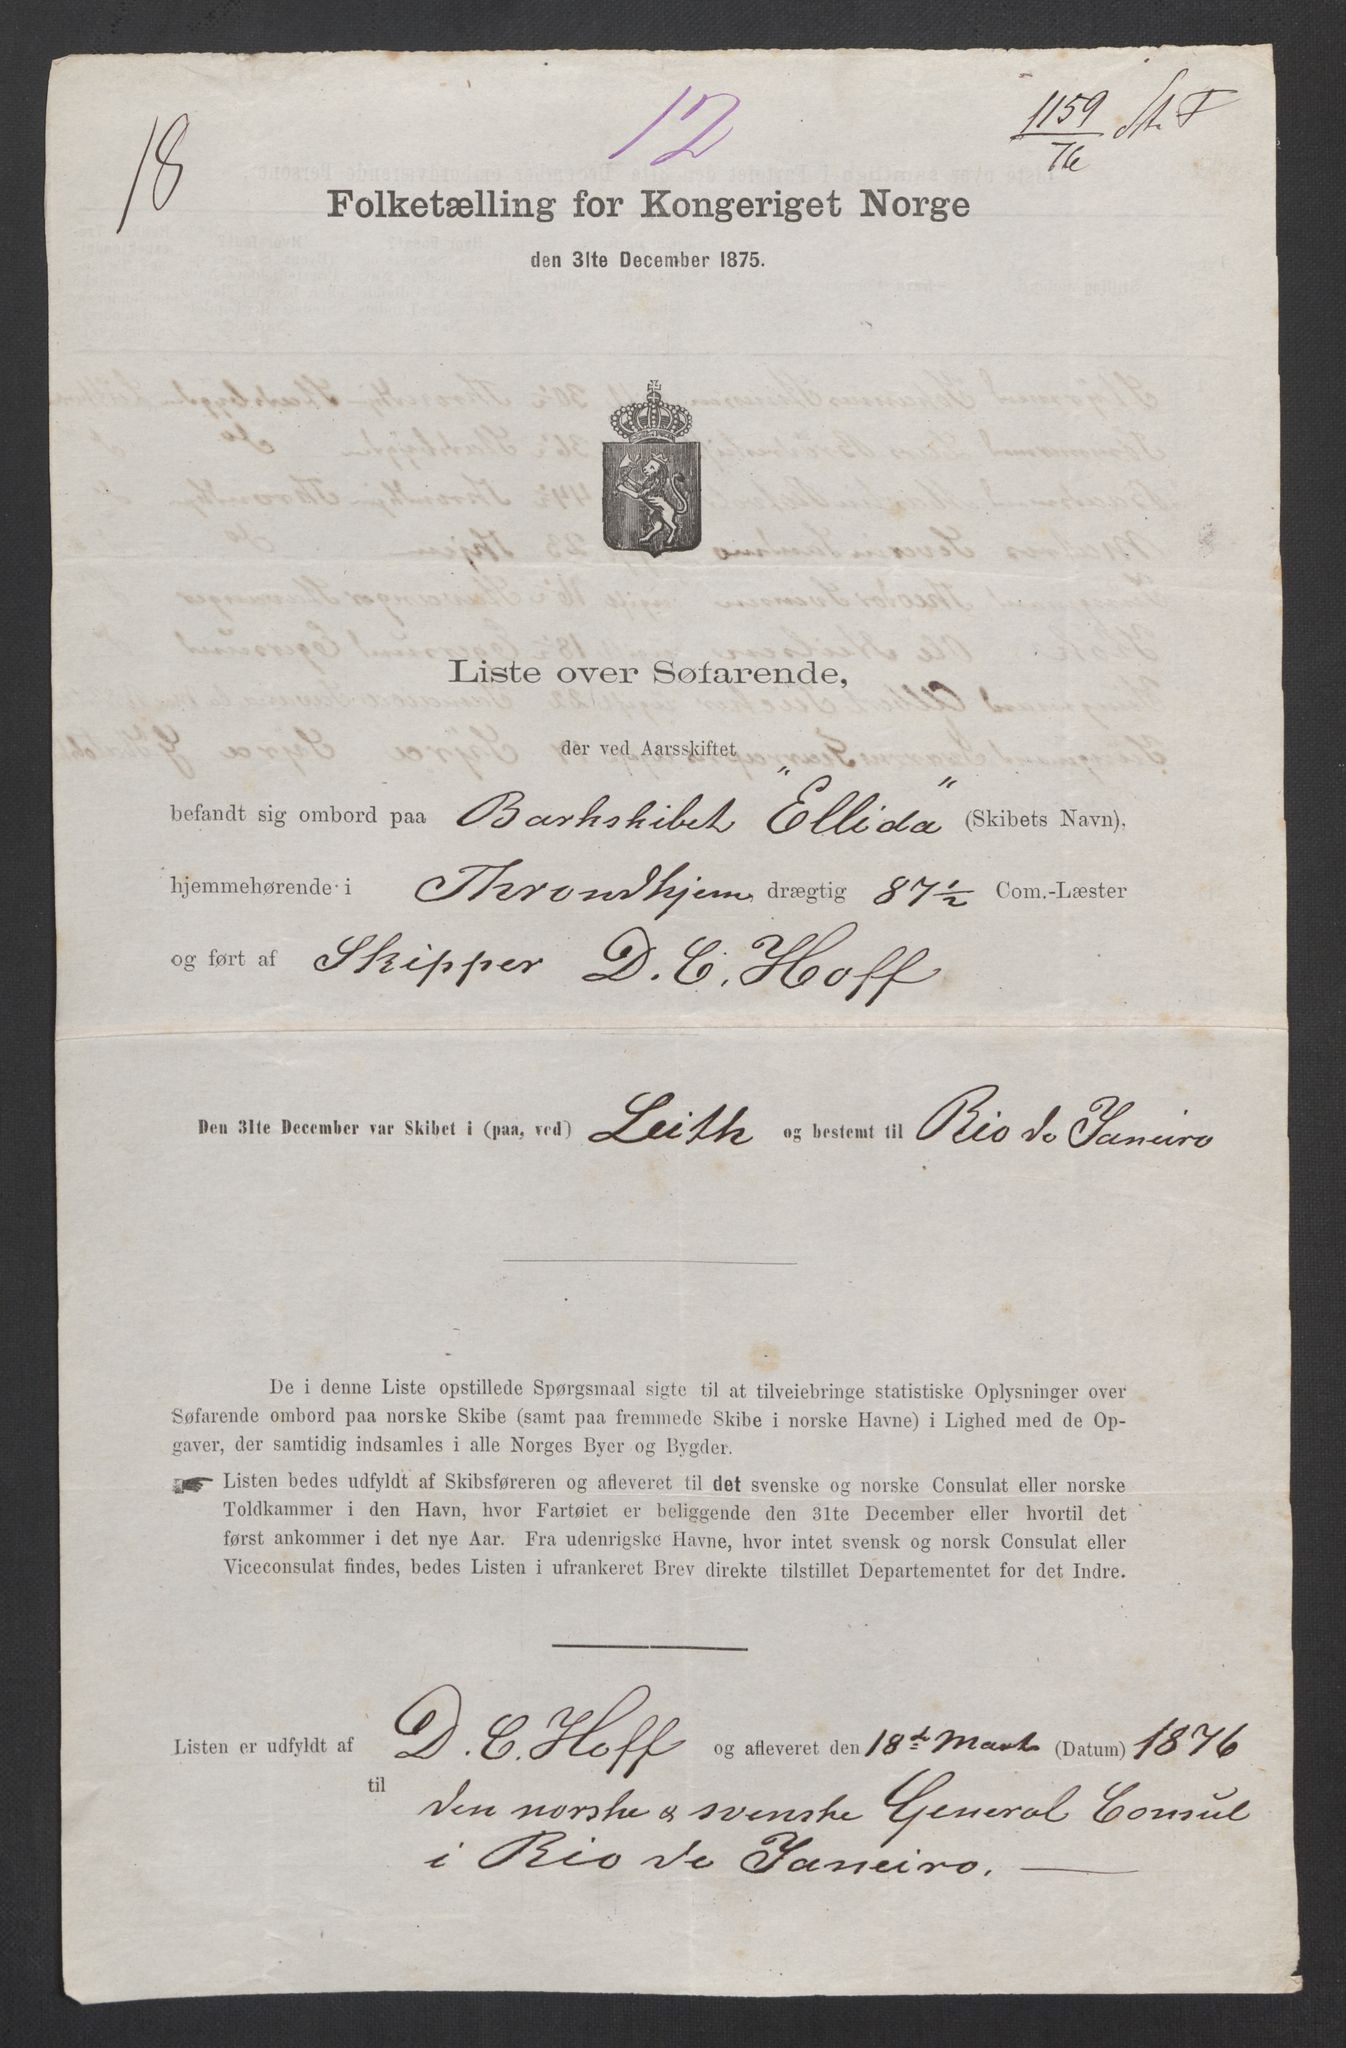 18
12
1159/76 St. F
Folketælling for Kongeriget Norge
den 31te December 1875.
Liste over Søfarende,
der ved Aarsskiftet
befandt sig ombord paa Barkskibet "Ellida" (Skibets Navn),
hjemmehørende i Throndhjem, drægtig 87 1/2 Com.-Læster
og ført af Skipper D. C. Hoff
Den 31te December var Skibet i (paa, ved) Leith og bestemt til Rio de Janeiro
De i denne Liste opstillede Spørgsmaal sigte til at tilveiebringe statistiske Oplysninger over
Søfarende ombord paa norske Skibe (samt paa fremmede Skibe i norske Havne) i Lighed med de Op-
gaver, der samtidig indsamles i alle Norges Byer og Bygder.
☛ Listen bedes udfyldt af Skibsføreren og afleveret til det svenske og norske Consulat eller norske
Toldkammer i den Havn, hvor Fartøiet er beliggende den 31te December eller hvortil det
først ankommer i det nye Aar. Fra udenrigske Havne, hvor intet svensk og norsk Consulat eller
Viceconsulat findes, bedes Listen i ufrankeret Brev direkte tilstillet Departementet for det Indre.
Listen er udfyldt af D. C. Hoff og afleveret den 18de Marts (Datum) 1876
til
den norske & svenske General Consul
i Rio de Janeiro.